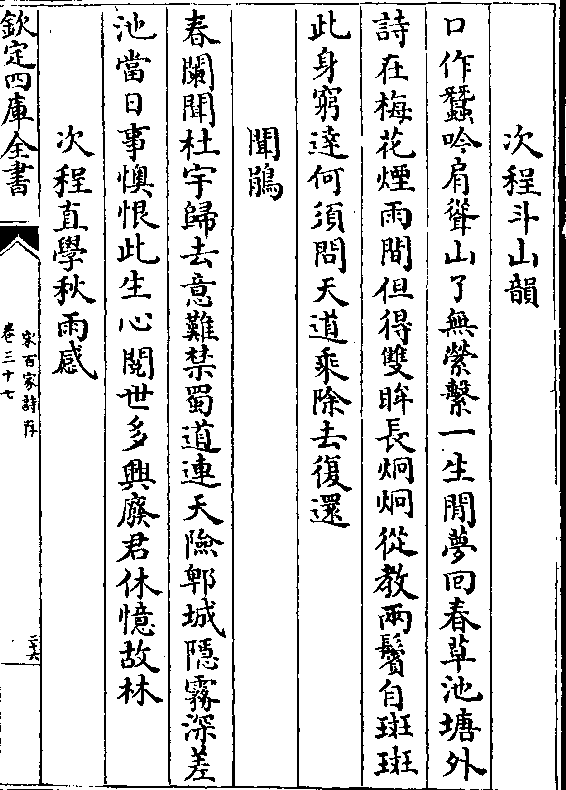 次程斗山韻
口作蠶吟肩聳山了無縈繫一生閒夢回春草池塘外
詩在梅花煙雨間但得雙眸長炯炯從教兩鬢自斑斑
此身窮達何須問天道乘除去復還
聞鵑
春闌聞杜宇歸去意難禁蜀道連天險郫城隱霧深差
池當日事懊恨此生心閱世多興廢君休憶故林
次程直學秋雨感
欽定四庫全書
宋百家詩存
卷三十七
二六